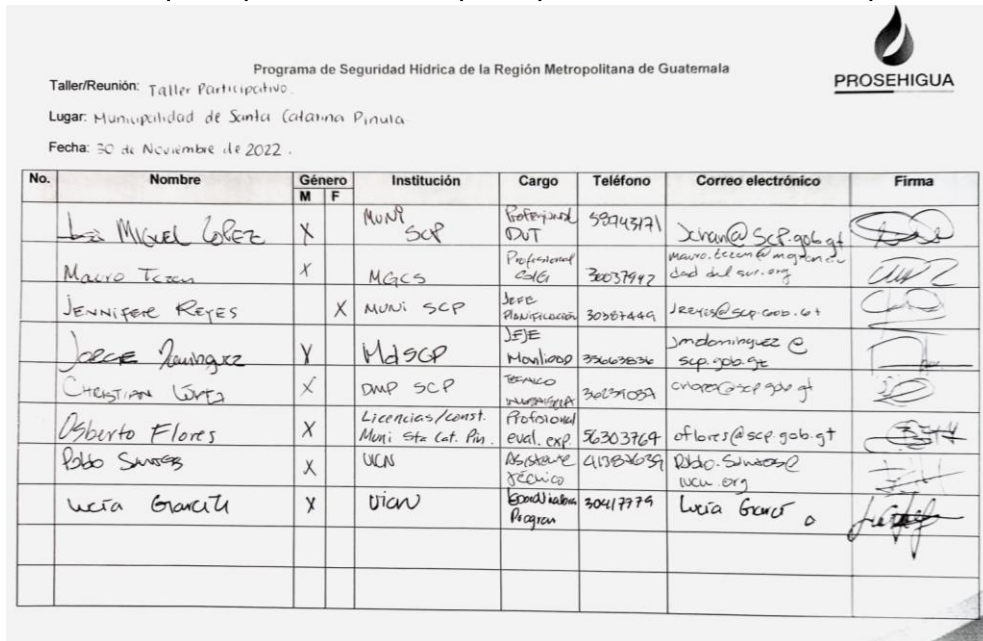 Programa de Seguridad Hídrica de la Región Metropolitana de Guatemala
PROSEHIGUA
Taller/Reunión: Taller Participativo.
Lugar: Municipalidad de Santa Catarina Pinula
Fecha: 30 de Noviembre de 2022.
No. Nombre Género Institución Cargo Teléfono Correo electrónico Firma
M F
José Miguel López X Muni SCP Profesional DUT @scp.gob.gt
Mauro X MGCS Profesional 30037942 dad del sur.org
JENNIFER REYES X MUNI SCP JEFE Planificación 30387449 Jreyes@scp.gob.gt
Jorge Dominguez X MdSCP JEFE 35663836 jmdominguez@scp.gob.gt
Christian X DMP SCP TECNICO
Osberto Flores X Licencias/const. Muni Sta Cat. Pin. Profesional eval. exp. 56303764 oflores@scp.gob.gt
Pablo X UICN Asistente Técnico
Lucía X UICN Coordinadora Program 30417779 Lucía